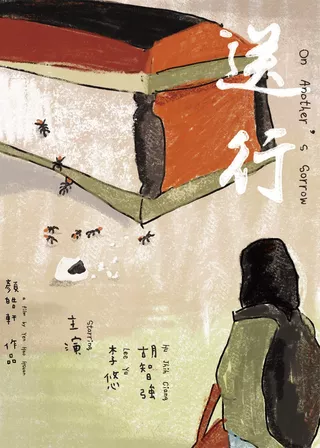 On Another's Sorrow
送行
Hu Jhih Ciang
胡智強
Lee Yo
李悠
Starring
主演
a film by Yen Hao Hsuan
顏皓軒 作品